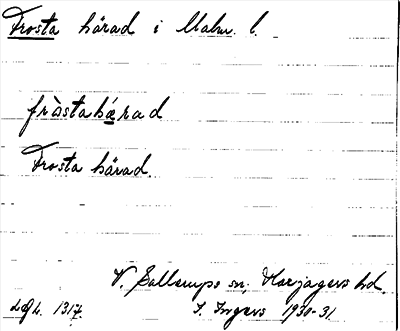 Frosta härad i Malm. l.
fràstahæ̀rad
Frosta härad.
V. Sallerups sn, Harjagers hd.
LAL. 1317. I. Ingers 1930-31